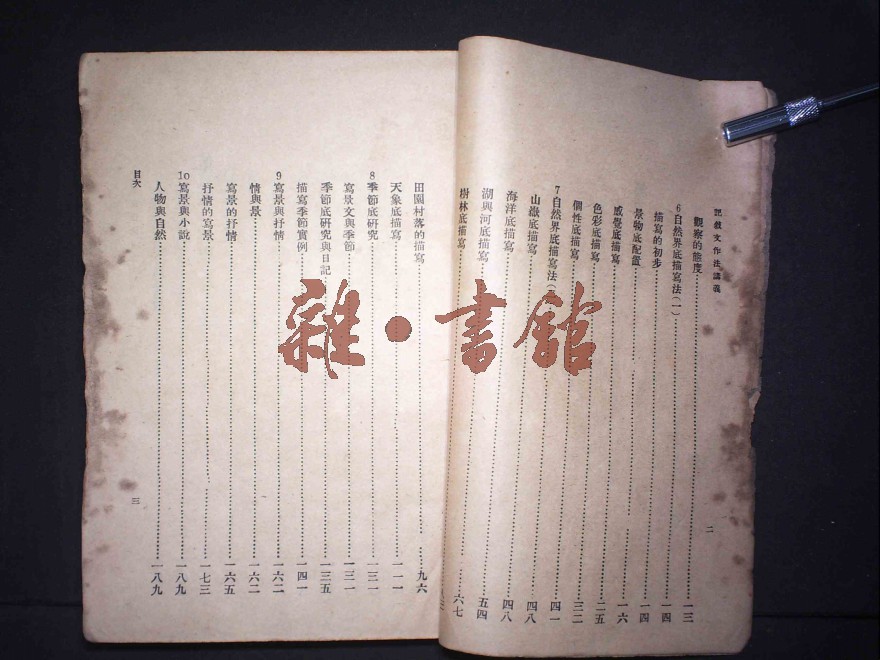 記敘文作法講義
觀察的態度 一三
6 自然界底描寫法(一) 一四
描寫的初步 一四
景物底配置 一六
感覺底描寫 二五
色彩底描寫 三二
個性底描寫 四一
7 自然界底描寫法(
山嶽底描寫 四八
海洋底描寫 四八
湖與河底描寫 五四
樹林底描寫 六七
二
田園村落的描寫 九六
天象底描寫 一一一
8 季節底研究 一三一
寫景文與季節 一三一
季節底研究與日記 一三五
描寫季節實例 一四一
9 寫景與抒情 一六二
情與景 一六二
寫景的抒情 一六五
抒情的寫景 一七三
10 寫景與小說 一八九
人物與自然 一八九
目次
三
雜·書館